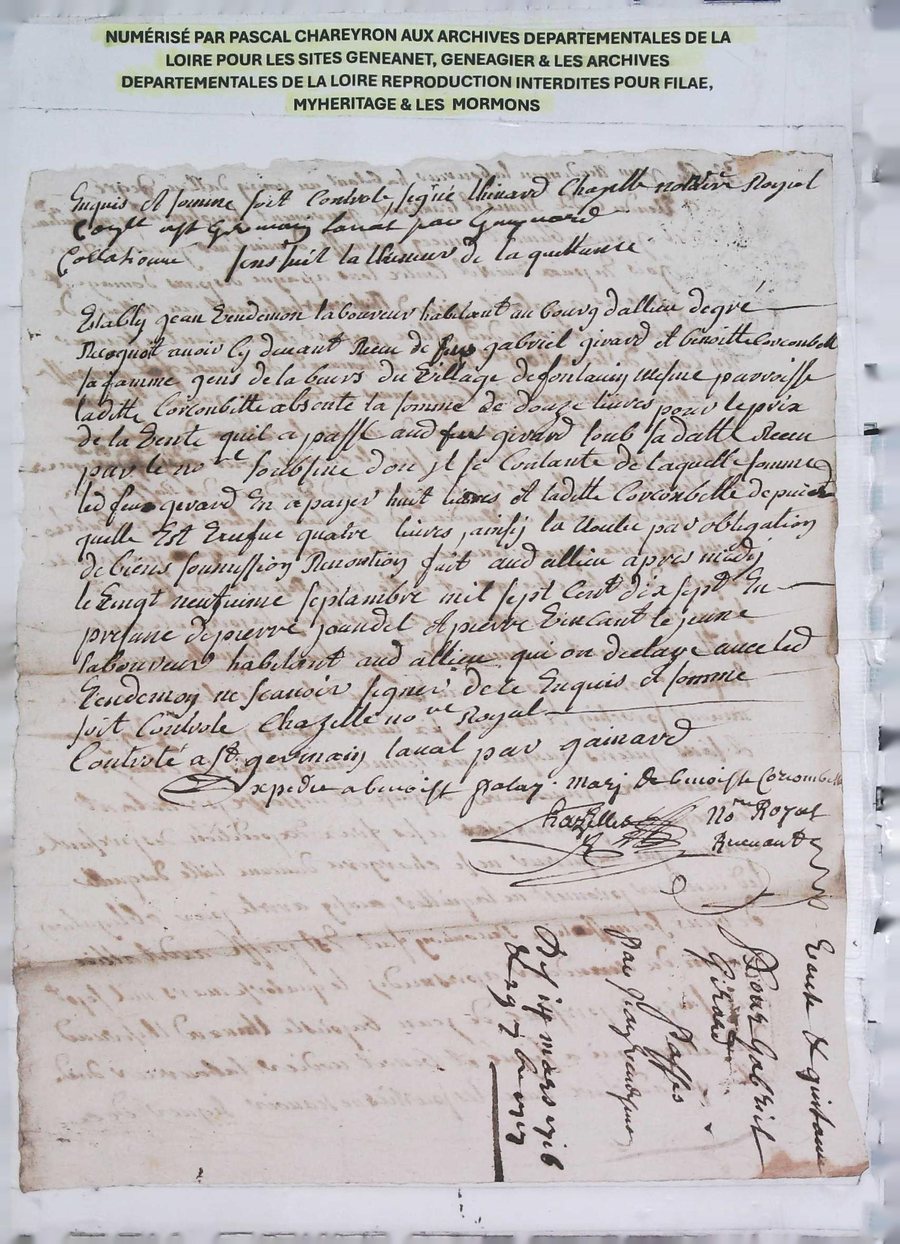 NUMÉRISÉ PAR PASCAL CHAREYRON AUX ARCHIVES DEPARTEMENTALES DE LA
LOIRE POUR LES SITES GENEANET, GENEAGIER & LES ARCHIVES
DEPARTEMENTALES DE LA LOIRE REPRODUCTION INTERDITES POUR FILAE,
MYHERITAGE & LES MORMONS
Enquis et somme soit Controle signé thinard Chazelle notaire Royal
st Germain laval par Gaynard
Collationné sensuit la theneur de la quittance
Estably jean Vendemon laboureur habitant au bourg dallieu degré
Recognoit avoir cy devant Receu de feu gabriel girard et benoitte Corconbette
sa famme gens de labeurs du Village de fontanin mesme parroisse
laditte Corconbette absente la somme de douze livres pour le prix
de la Vente quil a passé aud feu girard soub sa datte Receu
par le no re soubsine don jl se Contante de laquelle somme
led feu girard En a payer huit livres et laditte Corconbelle depuis
quelle Est Veufue quatre livres ainsy la voulu par obligation
de biens soumission Renontion fait aud allieu apres midy
le Vingt neufuime septambre mil sept Cent dix sept En
presane de pierre joandel et pierre Vincant le jeune
laboureurs habitant aud allieu qui on declaré avec led
Vendemon ne scavoir signer de ce Enquis et somme
soit Controle Chazelle no re Royal
Controlé a st germain laval par gainard
Expedie a benoist palay marj de benoiste Corcombette
Chazelles nore Royal
Recevant
Vente & quittance
Pour Gabriel
Girard
Passés
Par
Des 14 mars 1716
& 29 7bre 1717